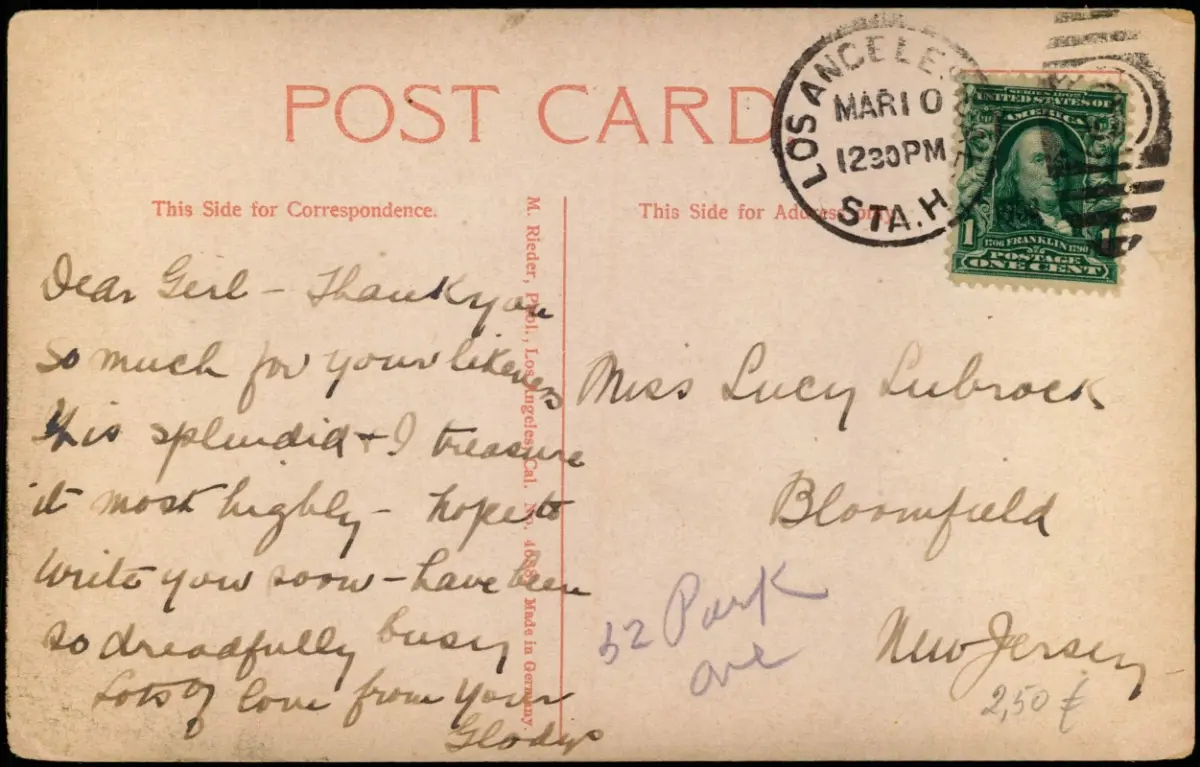 POST CARD
This Side for Correspondence.
This Side for Address only.
M. Rieder, Publ., Los Angeles, Cal. No. Made in Germany.
LOS ANGELES,
MAR 10
1230PM
STA. H
SERIES 1902
UNITED STATES OF
AMERICA
1 1
1706 FRANKLIN 1790
POSTAGE
ONE CENT
Dear Girl - Thank you
so much for your likeness
It is splendid + I treasure
it most highly - hope to
write you soon - have been
so dreadfully busy
Lots of love from your
Gladys
Miss Lucy Lubrock
Bloomfield
52 Park
ave
New Jersey
2,50 €